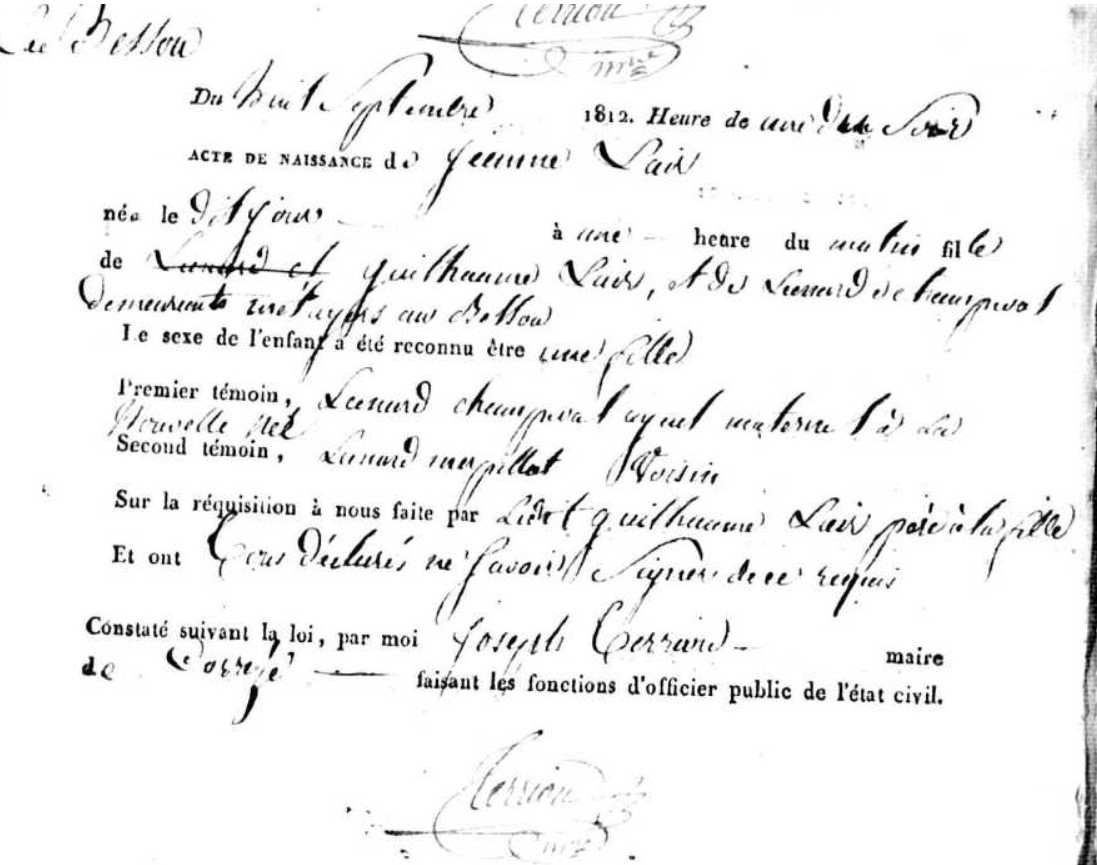 Le Bessou
Terriou
mre
Du huit Septembre 1812. Heure de une du Soir
ACTE DE NAISSANCE de Jeanne Lair
née le dit jour à une heure du matin fille
de Lenard et guilhaume Lair, et de Lenard de champival
demeurants métayers au Bessou
Le sexe de l'enfant a été reconnu être une fille
Premier témoin, Lenard champival ayeul maternel à La
Second témoin, Lenard Voisin
Sur la réquisition à nous faite par Ledit guilhaume Lair père à la fille
Et ont tous déclarés ne Savoir Signer de ce requis
Constaté suivant la loi, par moi Joseph Terriou maire
de Corrèze faisant les fonctions d'officier public de l'état civil.
Terriou
mre